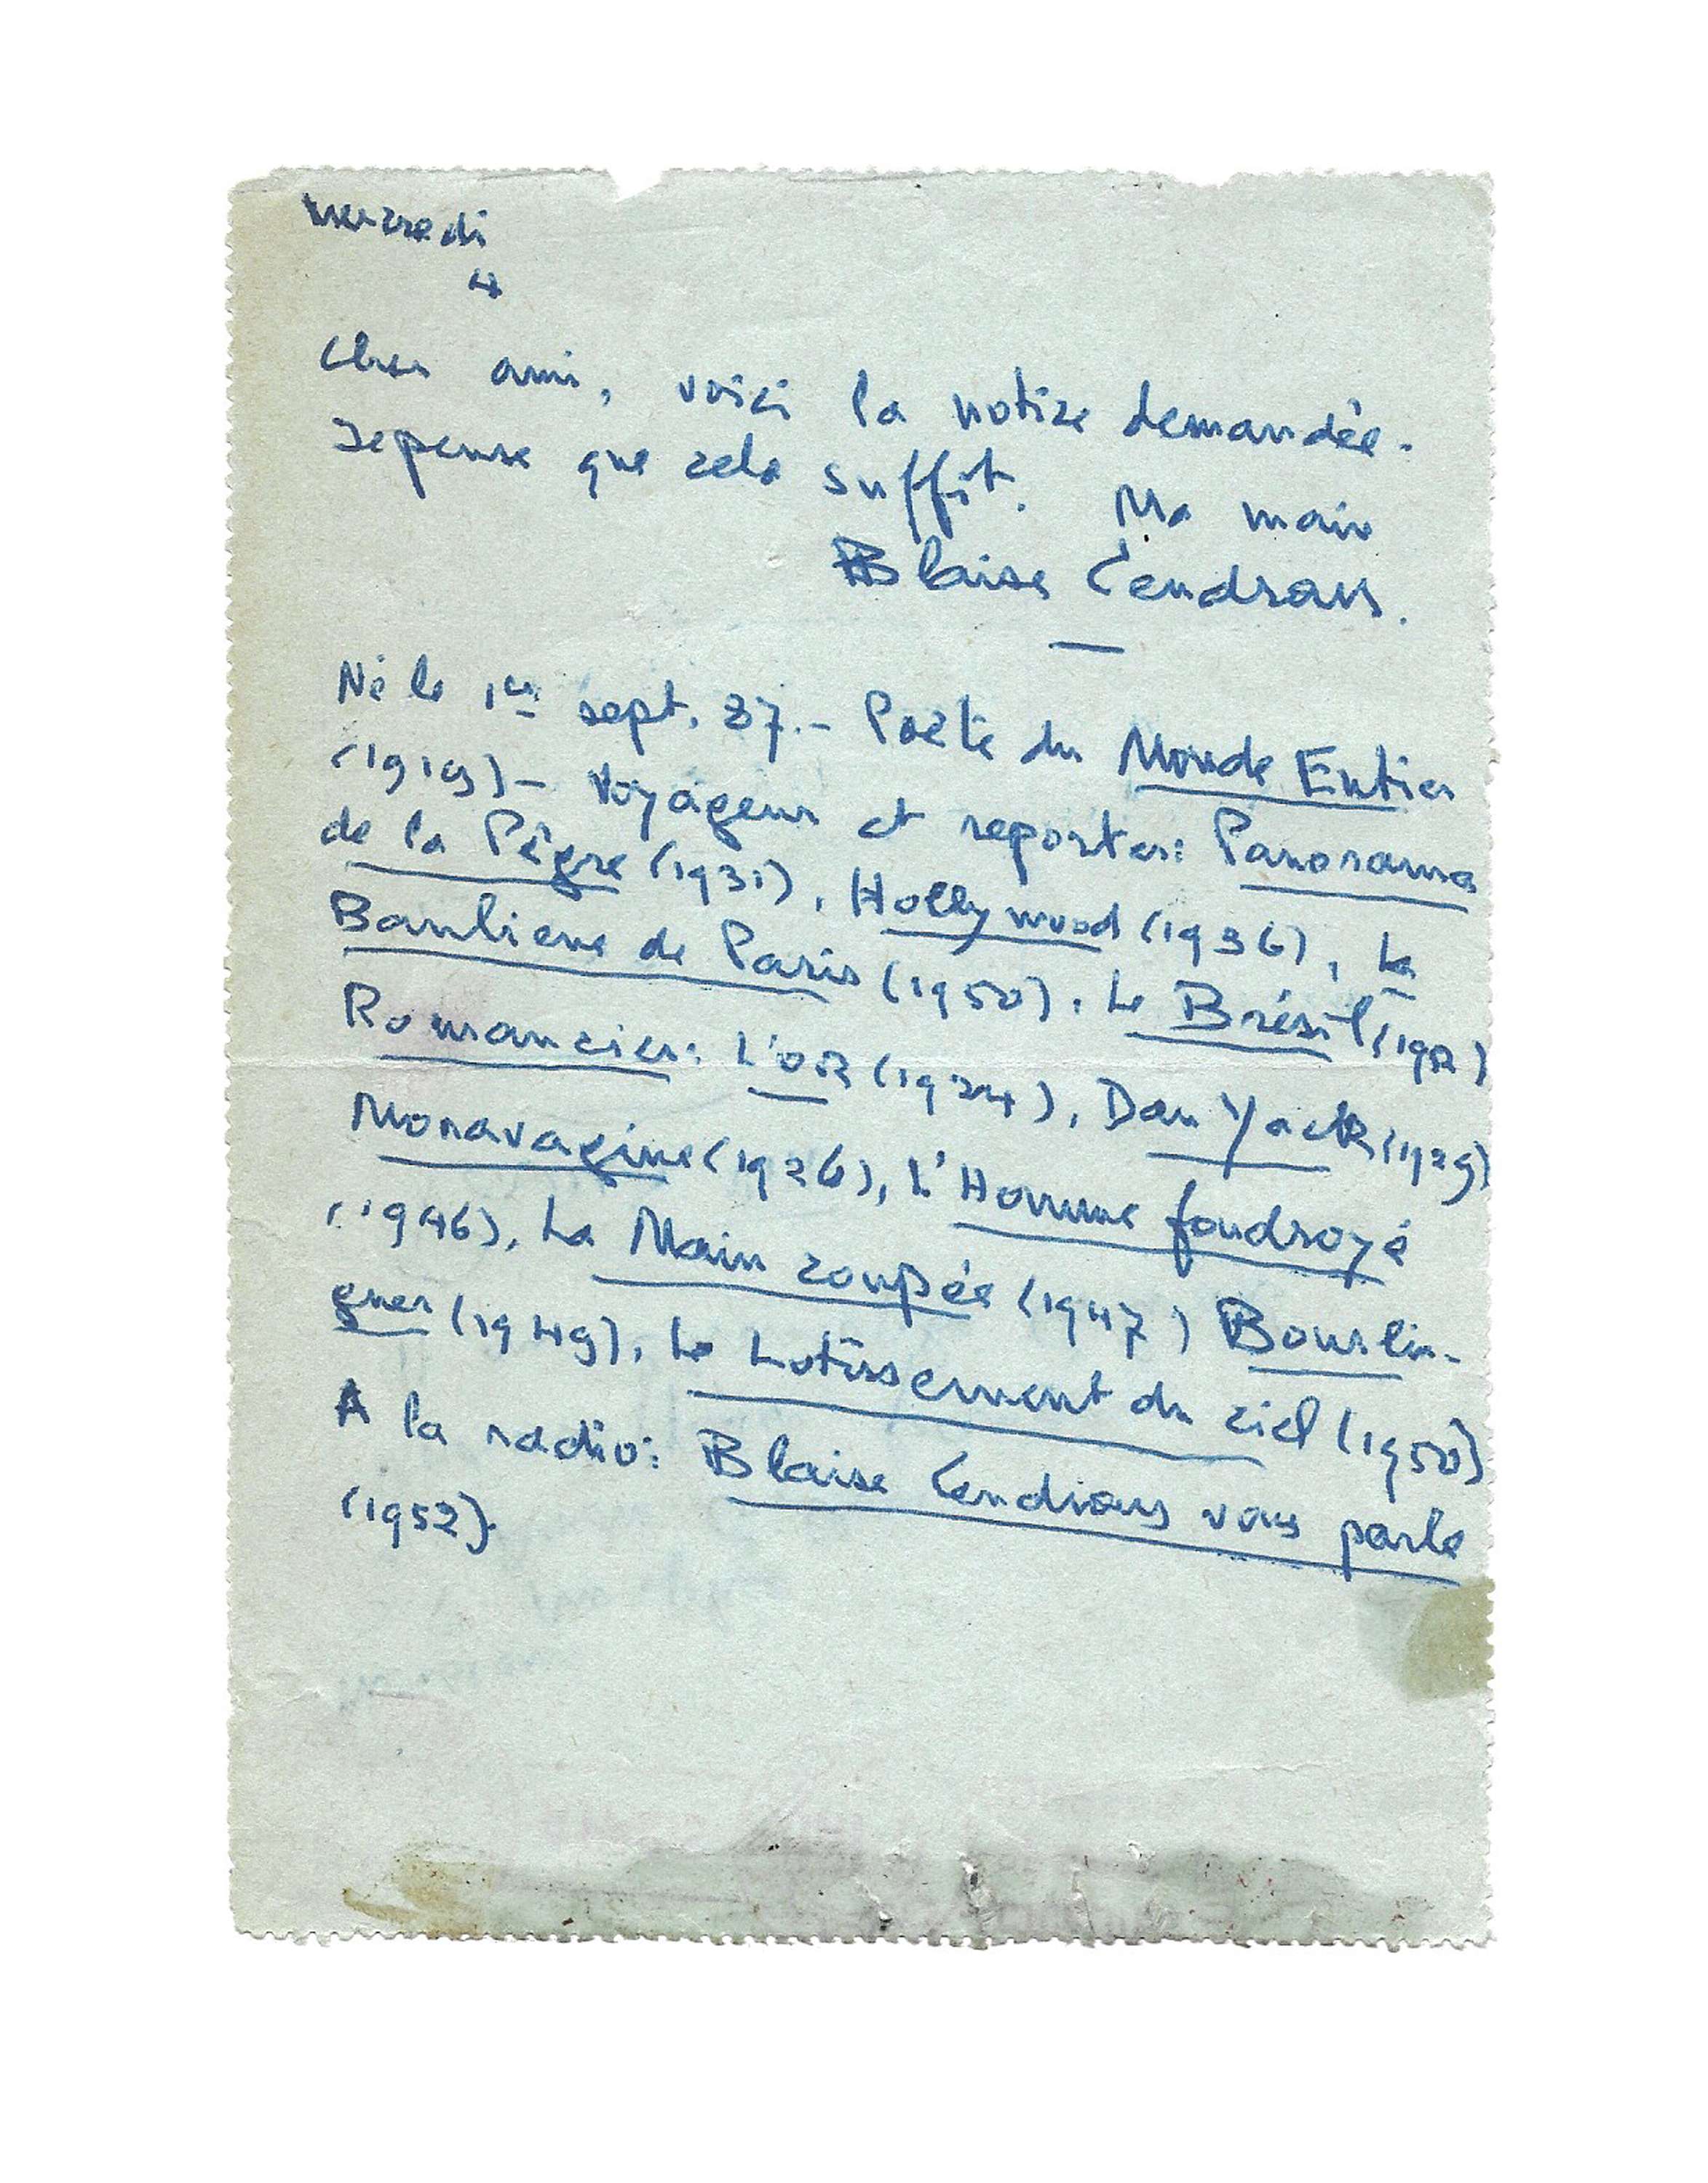 Mercredi
4
Cher ami, voici la notice demandée.
Je pense que cela suffit. Ma main
Blaise Cendrars.
Né le 1er sept. 87. – Poète du Monde Entier
(1919) – Voyageur et reporter: Panorama
de la Pègre (1931), Hollywood (1936), La
Banlieue de Paris (1950), Le Brésil (1952)
Romancier: L'or (1924), Dan Yack (1929)
Moravagine (1926), L'Homme foudroyé
(1946), La Main coupée (1947) Bourlin-
guer (1949), Le Lotissement du ciel (1950)
A la radio: Blaise Cendrars vous parle
(1952).